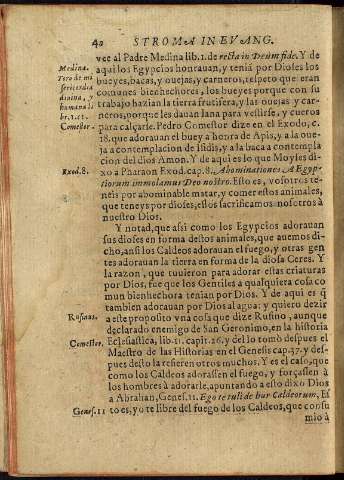 42 STROMA IN EVANG.
vee al Padre Medina lib. 1. de recta in Deum fide. Y de
aqui los Egypcios honrauan, y teniã por Dioses los
bueyes, bacas, y ouejas, y carneros, respeto que eran
comunes bienhechores, los bueyes porque con su
trabajo hazian la tierra frutifera, y las ouejas y car-
neros, porque les dauan lana para vestirse, y cueros
para calçarse. Pedro Comestor dize en el Exodo, c.
18. que adorauan el buey a honra de Apis, y a la oue-
ja a contemplacion de Isidis, y a la baca a contempla
cion del dios Amon. Y de aqui es lo que Moyses di-
xo a Pharaon Exod. cap. 8. Abominationes Aegyp-
tiorum immolamus Deo nostro. Esto es, vosotros te-
neis por abominable matar, y comer estos animales,
que teneys por dioses, estos sacrificamos nosotros à
nuestro Dios.
Y notad, que assi como los Egypcios adorauan
sus dioses en forma destos animales, que auemos di-
cho, ansi los Caldeos adorauan el fuego, y otras gen
tes adorauan la tierra en forma de la diosa Ceres. Y
la razon, que tuuieron para adorar estas criaturas
por Dios, fue que los Gentiles a qualquiera cosa co
mun bienhechora tenian por Dios. Y de aqui es q̃
tambien adorauan por Dios al agua: y quiero dezir
a este proposito vna cosa que dize Rufino, aunque
declarado enemigo de San Geronimo, en la historia
Eclesiastica, lib. 11. capit. 26. y del lo tomò despues el
Maestro de las Historias en el Genesis cap. 37. y des-
pues desto la refieren otros muchos. Y es el caso, que
como los Caldeos adorassen el fuego, y forçassen à
los hombres à adorarle, apuntando a esto dixo Dios
a Abrahan, Genes. 11. Ego te tuli de hur Caldeorum, Es
to es, yo te libre del fuego de los Caldeos, que consu
mio à
Medina.
Toro de mi
sericordia
diuina, y
humana li
br. 1. ct.
Comestor.
Exod. 8.
Rufinus.
Comestor.
Genes. 11